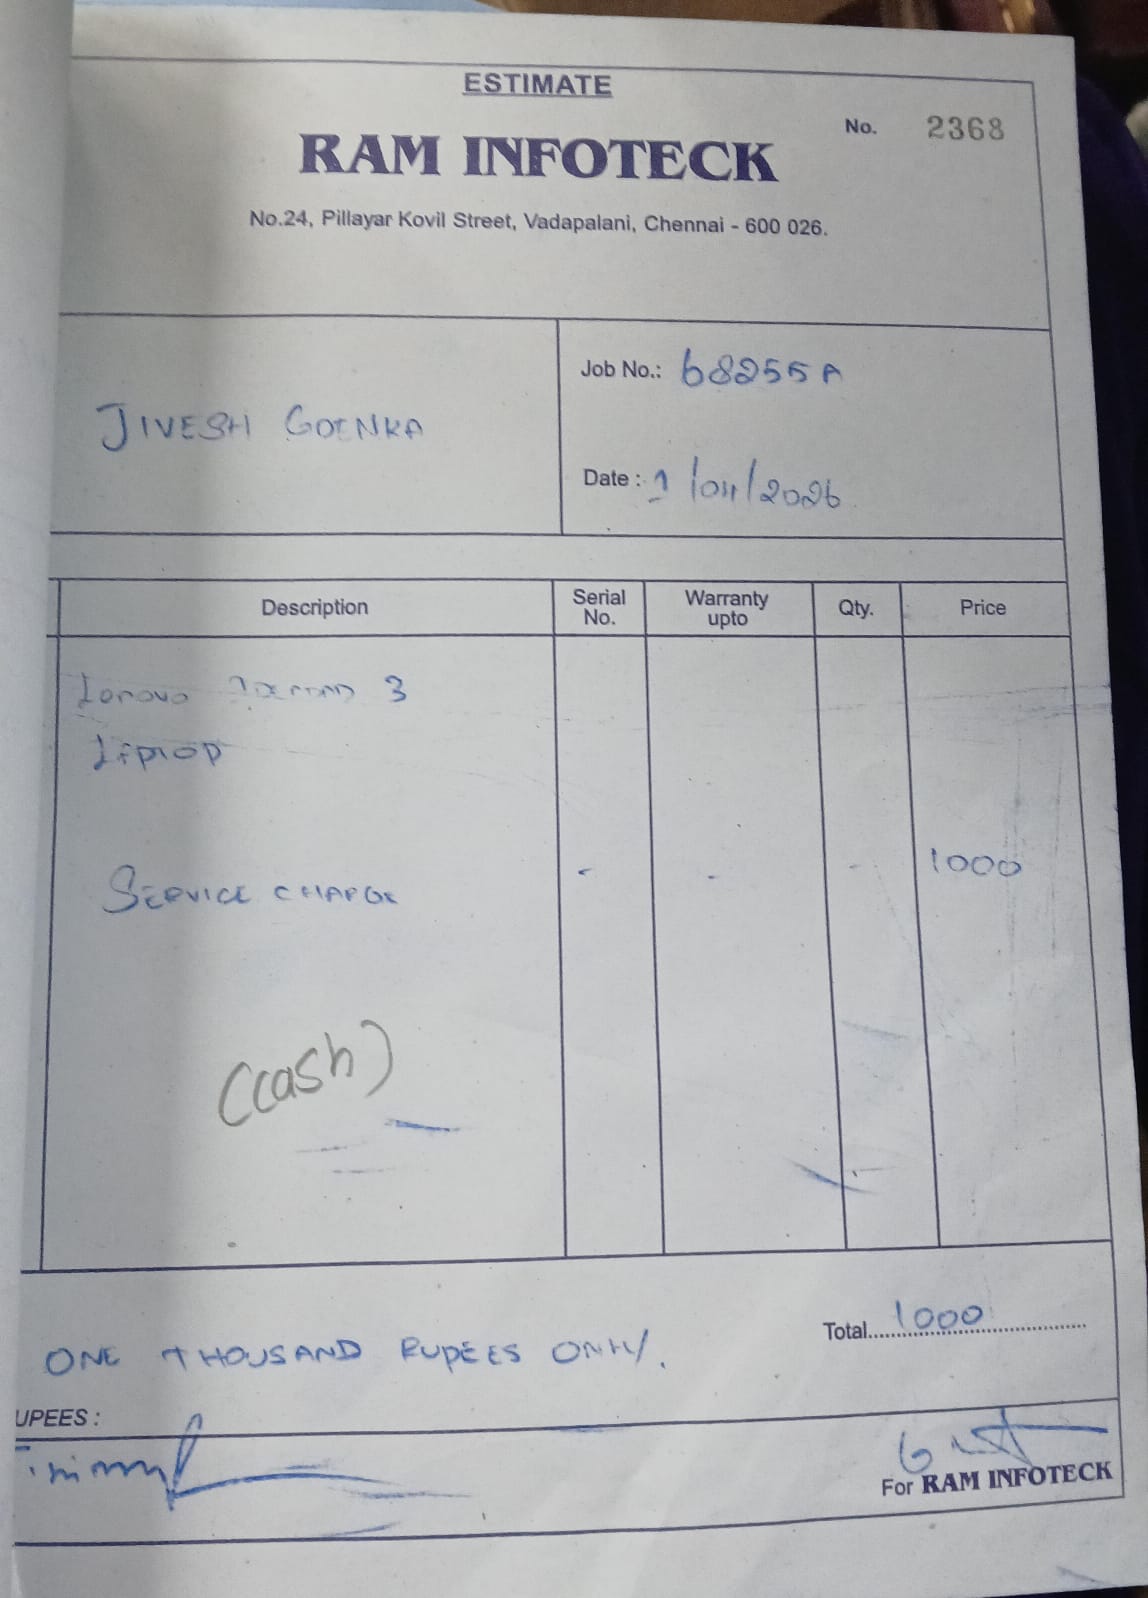 ESTIMATE
No. 2368
RAM INFOTECK
No.24, Pillayar Kovil Street, Vadapalani, Chennai - 600 026.
JIVESH GOENKA
Job No.: 68255A
Date : 1/04/2026
Description Serial No. Warranty upto Qty. Price
Lenovo 3
SERVICE CHARGE - - - 1000
(cash)
Total 1000
ONE THOUSAND RUPEES ONLY.
UPEES :
For RAM INFOTECK